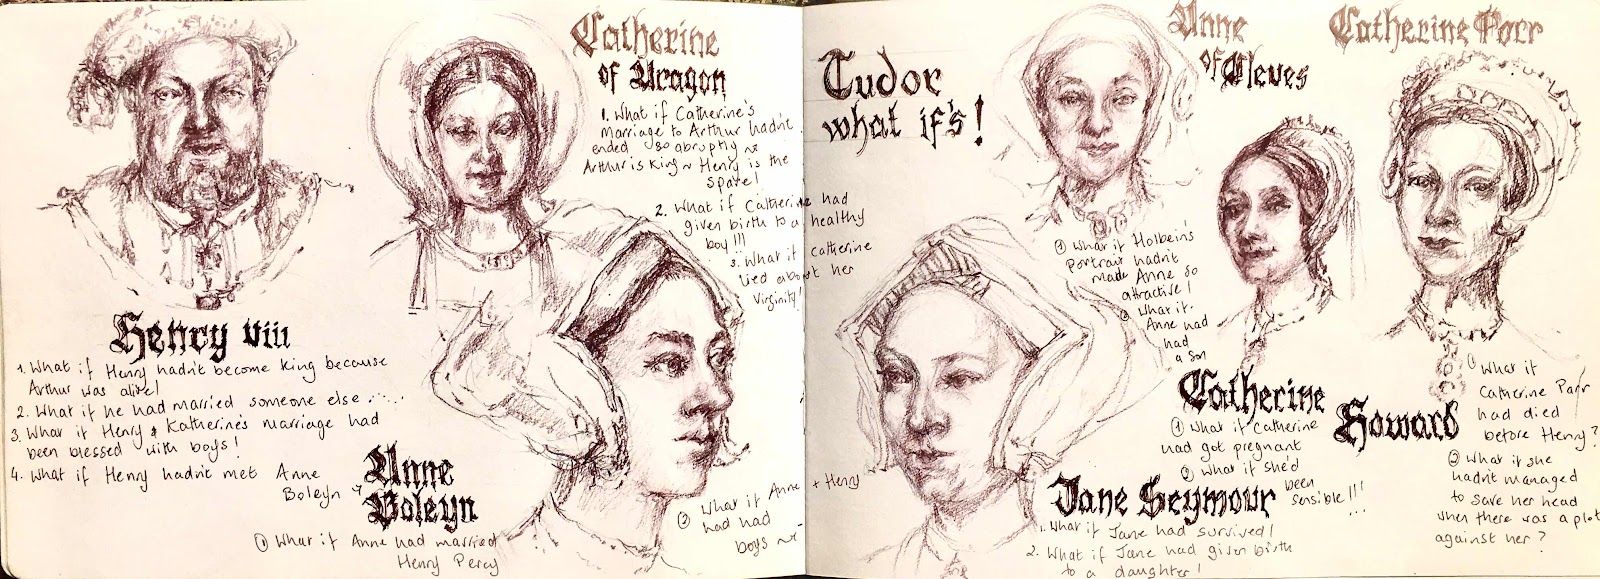 Henry viii
1. What if Henry hadn't become King because
Arthur was alive!
2. What if he had married someone else.....
3. What if Henry & Katherine's marriage had
been blessed with boys!
4. What if Henry hadn't met Anne
Boleyn
Catherine
of Aragon
1. What if Catherine's
marriage to Arthur hadn't
ended so abruptly ~
Arthur is King ~ Henry is the
spare!
2. What if Catherine had
given birth to a healthy
boy!!!
3. What if Catherine
lied about her
Virginity!
Anne
Boleyn
① What if Anne had married
Henry Percy
② What if Anne + Henry
had had
boys ~
Tudor
what if's!
Anne
of Cleves
① What if Holbein's
Portrait hadn't
made Anne so
attractive!
② What if
Anne had
had
a son
Jane Seymour
1. What if Jane had survived!
2. What if Jane had given birth
to a daughter!
Catherine
Howard
① What if Catherine
had got pregnant
② What if she'd
been
sensible!!!
Catherine Parr
① What if
Catherine Parr
had died
before Henry?
② What if she
hadn't managed
to save her head
when there was a plot
against her?